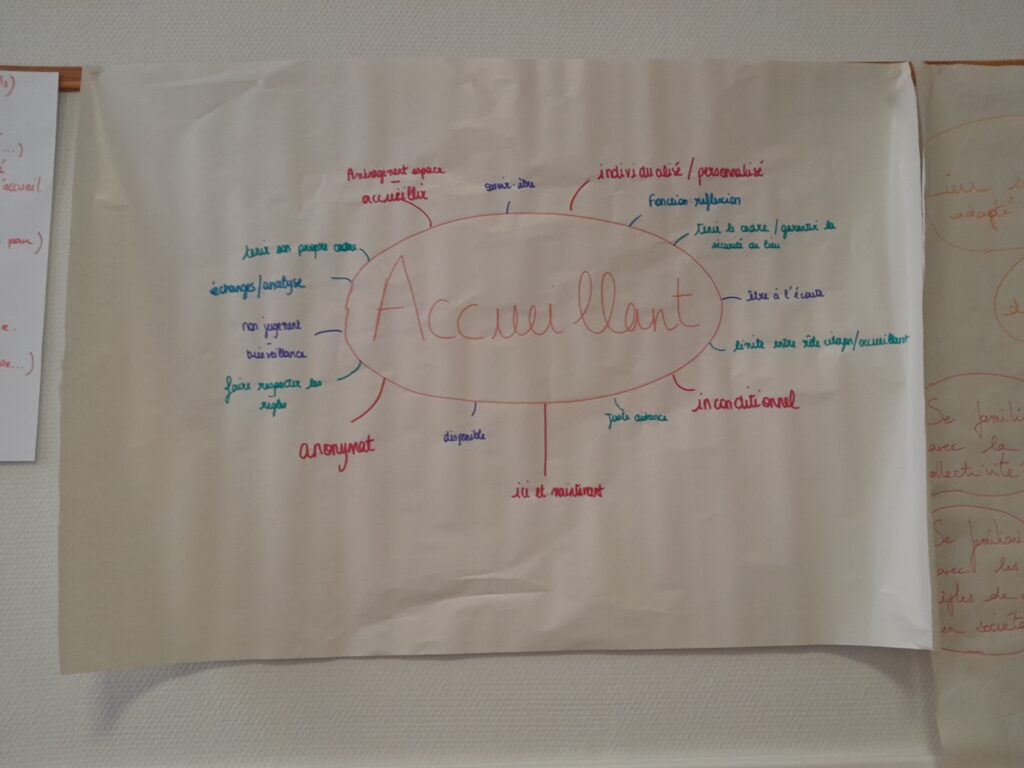 accueil
Aménagement espace
accueillir
savoir-être
individualisé / personnalisé
Fonction réflexion
tenir le cadre / garantir la
sécurité du lieu
tenir son propre cadre
échanges/analyse
être à l'écoute
Accueillant
non jugement
bienveillance
limite entre rôle citoyen/accueillant
faire respecter les
règles
inconditionnel
Juste distance
anonymat
disponible
ici et maintenant
Lieu
adapté
Se
avec la
Se
avec les
de
en société